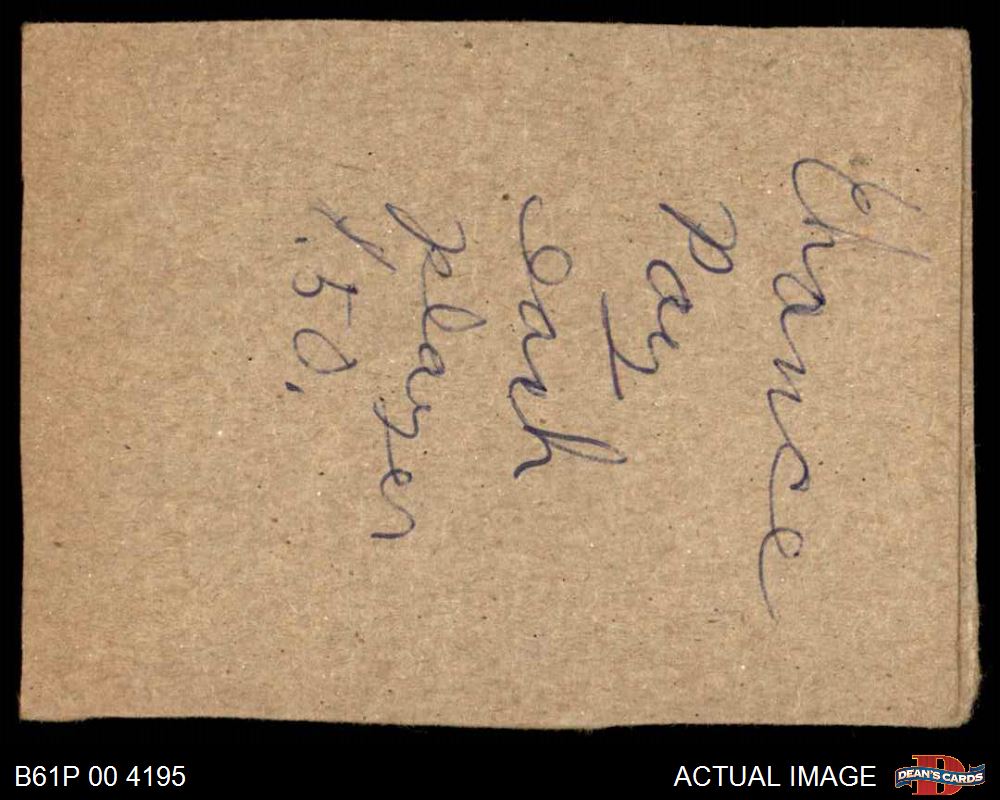 Chance
Pay
Each
player
$.50.
B61P 00 4195
ACTUAL IMAGE
DEAN'S CARDS